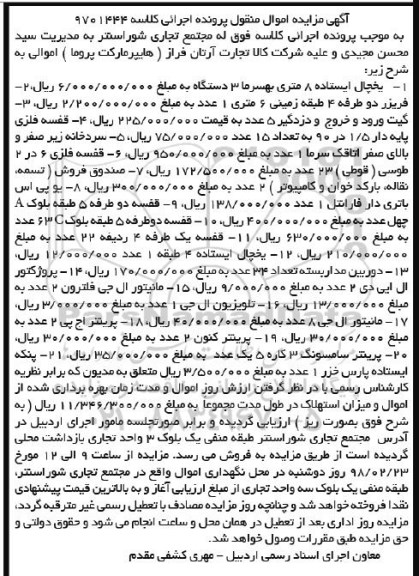 آگهی مزایده اموال منقول پرونده اجرائی کلاسه ۹۷۰۱۴۴۴
به موجب پرونده اجرائی کلاسه فوق له مجتمع تجاری شوراسنتر به مدیریت سید
محسن مجیدی و علیه شرکت کالا تجارت آرتان فراز ( هایپرمارکت پروما ) اموالی به
شرح زیر:
۱- یخچال ایستاده ۸ متری بهسرما ۳ دستگاه به مبلغ ۶/۰۰۰/۰۰۰/۰۰۰ ریال،۲-
فریزر دو طرفه ۴ طبقه زمینی ۶ متری ۱ عدد به مبلغ ۲/۲۰۰/۰۰۰/۰۰۰ ریال، ۳-
گیت ورود و خروج و دزدگیر ۵ عدد به قیمت ۲۲۵/۰۰۰/۰۰۰ ریال، ۴- قفسه فلزی
پایه دار ۱/۵ در ۹۰ به تعداد ۱۵ عدد ۷۵/۰۰۰/۰۰۰ ریال، ۵- سردخانه زیر صفر و
بالای صفر اتاقک سرما ۱ عدد به مبلغ ۹۵۰/۰۰۰/۰۰۰ ریال، ۶- قفسه فلزی ۶ در ۲
طوسی ( قوطی ) ۲۳ عدد به مبلغ ۱۷۲/۵۰۰/۰۰۰ ریال، ۷- صندوق فروش ( تسمه،
نقاله، بارکد خوان و کامپیوتر ) ۲ عدد به مبلغ ۳۰۰/۰۰۰/۰۰۰ ریال، ۸- یو پی اس
باتری دار فاراتل ۱ عدد ۱۳۸/۰۰۰/۰۰۰ ریال، ۹- قفسه دو طرفه ۵ طبقه بلوک A
چهل عدد به مبلغ ۴۰۰/۰۰۰/۰۰۰ ریال، ۱۰- قفسه دوطرفه ۵ طبقه بلوک C ۶۳ عدد
به مبلغ ۶۳۰/۰۰۰/۰۰۰ ریال، ۱۱- قفسه یک طرفه ۴ ردیفه ۲۲ عدد به مبلغ
۲۱۰/۰۰۰/۰۰۰ ریال، ۱۲- یخچال ایستاده ۴ طبقه ۱ عدد ۱۲/۰۰۰/۰۰۰ ریال،
۱۳- دوربین مداربسته تعداد ۳۴ عدد به مبلغ ۱۷۰/۰۰۰/۰۰۰ ریال، ۱۴- پروژکتور
ال ایی دی ۲ عدد به مبلغ ۹/۰۰۰/۰۰۰ ریال، ۱۵- مانیتور ال جی فلاترون ۲ عدد به
مبلغ ۱۳/۰۰۰/۰۰۰ ریال، ۱۶- تلویزیون ال جی ۱ عدد به مبلغ ۳/۰۰۰/۰۰۰ ریال،
۱۷- مانیتور ال جی ۸ عدد به مبلغ ۴۰/۰۰۰/۰۰۰ ریال، ۱۸- پرینتر اچ پی ۲ عدد به
مبلغ ۳۰/۰۰۰/۰۰۰ ریال، ۱۹- پرینتر کنون ۲ عدد به مبلغ ۳۰/۰۰۰/۰۰۰ ریال،
۲۰- پرینتر سامسونگ ۳ کاره ۵ یک عدد به مبلغ ۳۵/۰۰۰/۰۰۰ ریال، ۲۱- پنکه
ایستاده پارس خزر ۱ عدد به مبلغ ۳/۵۰۰/۰۰۰ ریال متعلق به مدیون که برابر نظریه
کارشناس رسمی با در نظر گرفتن ارزش روز اموال و مدت زمان بهره برداری شده از
اموال و میزان استهلاک در طول مدت مجموعا به مبلغ ۱۱/۳۴۶/۳۰۰/۰۰۰ ریال ( به
شرح فوق بصورت ریز ) ارزیابی گردیده و برابر صورتجلسه مامور اجرای اردبیل در
آدرس مجتمع تجاری شوراسنتر طبقه منفی یک بلوک ۳ واحد تجاری بازداشت محلی
گردیده است از طریق مزایده به فروش می رسد. مزایده از ساعت ۹ الی ۱۲ مورخ
۹۸/۰۲/۲۳ روز دوشنبه در محل نگهداری اموال واقع در مجتمع تجاری شوراسنتر،
طبقه منفی یک بلوک سه واحد تجاری از مبلغ ارزیابی آغاز و به بالاترین قیمت پیشنهادی
نقدا فروخته خواهد شد و چنانچه روز مزایده مصادف با تعطیل رسمی غیر مترقبه گردد،
مزایده روز اداری بعد از تعطیل در همان محل و ساعت انجام می شود و حقوق دولتی و
حق مزایده طبق مقررات وصول خواهد شد.
معاون اجرای اسناد رسمی اردبیل - مهری کشفی مقدم